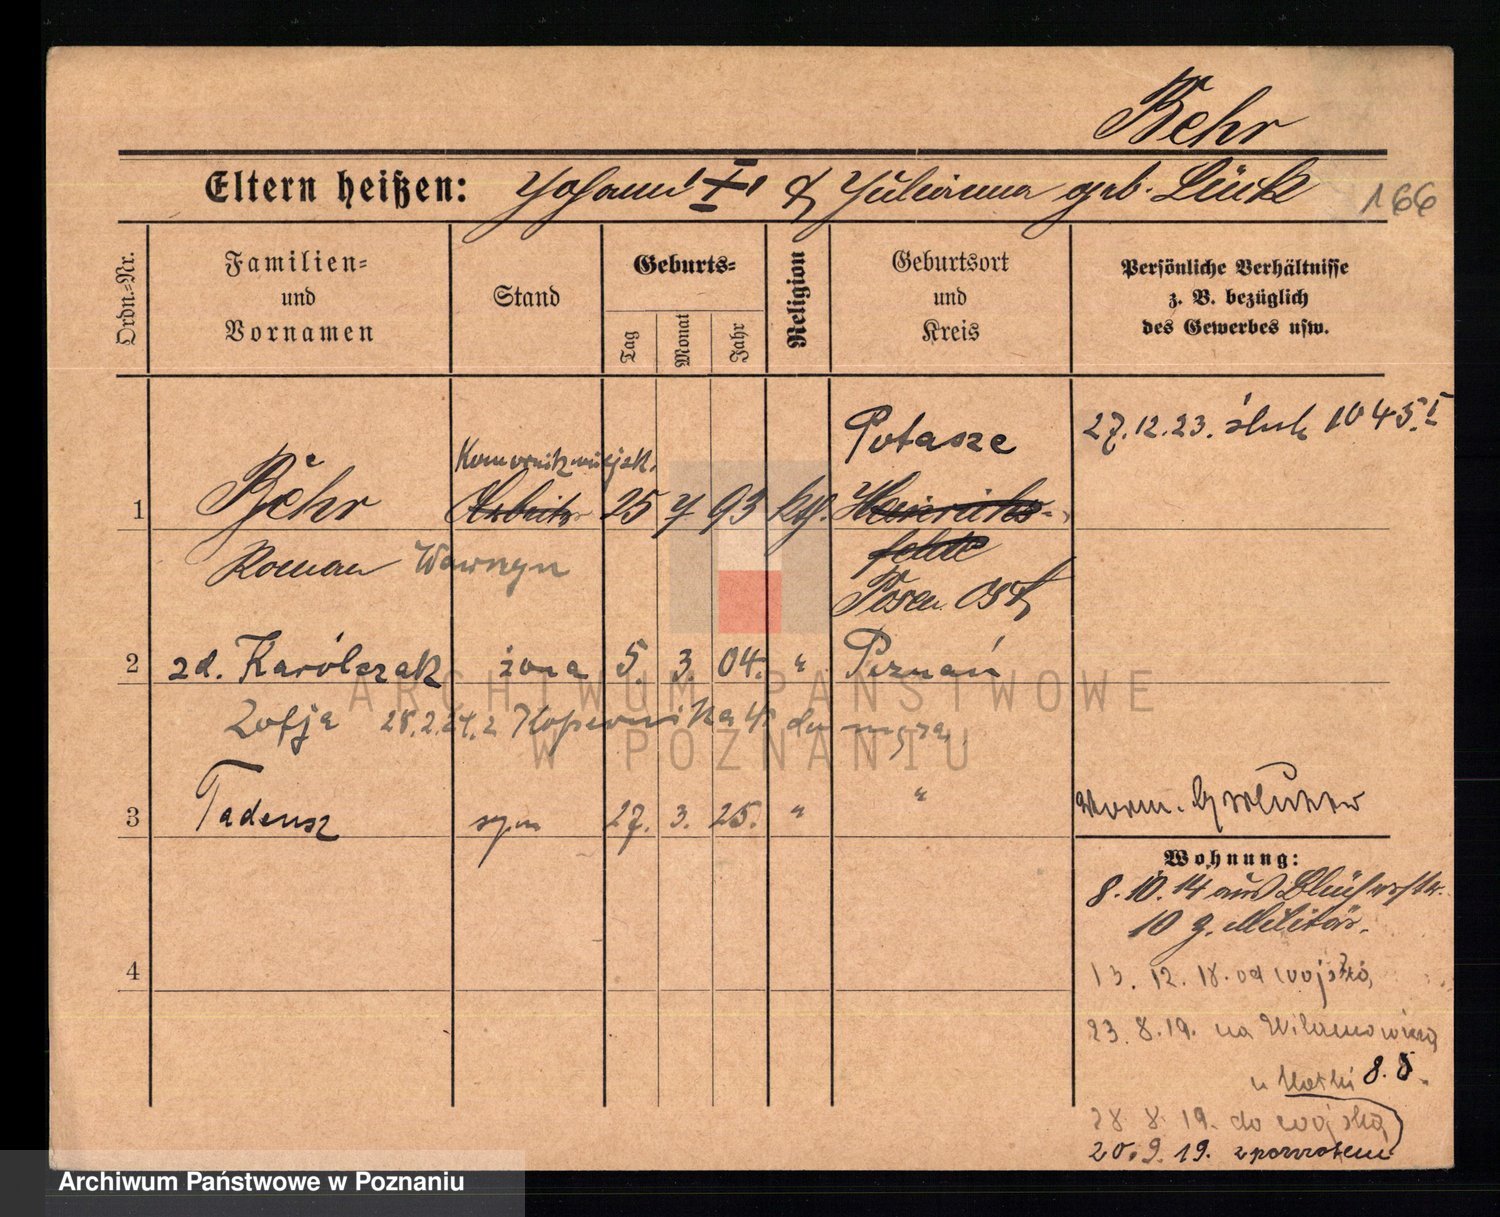 Behr
Eltern heißen: Johann I. & Julianna geb. Lück 166
Ordn.-Nr.
Familien- und Vornamen
Stand
Geburts-
Tag
Monat
Jahr
Religion
Geburtsort und Kreis
Persönliche Verhältnisse z. B. bezüglich des Gewerbes usw.
Potasze
27.12.23. ślub 1045.I
Komornik miejsk.
1 Behr Arbeiter 25 7 93 kth. Heinrichs-
felde
Roman Wawrzyn
Posen Ost
2 zd. Karólczak żona 5. 3. 04. " Poznań
Zofja 28.2.24. z Kopernika 4 do męża
3 Tadeusz syn 27. 3. 25. " "
Worm.
Wohnung:
8.10.14 aus Blücherstr.
10 z. Militär.
4
13. 12. 18. od wojska,
23. 8. 19. na Wilamowicza
u Matki 8. 8.
28 8 19. do wojska,
20. 9. 19. z powrotem
ARCHIWUM PAŃSTWOWE
W POZNANIU
Archiwum Państwowe w Poznaniu